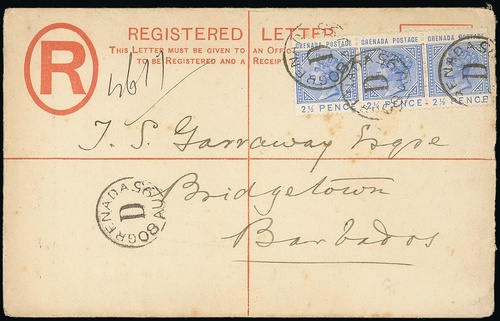 REGISTERED LETTER
THIS LETTER MUST BE GIVEN TO AN OFFICER
TO BE REGISTERED AND A RECEIPT
R
GRENADA POSTAGE GRENADA POSTAGE GRENADA POSTAGE
2½ PENCE 2½ PENCE 2½ PENCE
D D D
T. S. Garraway Esqre
Bridgetown
Barbados
GRENADA
D